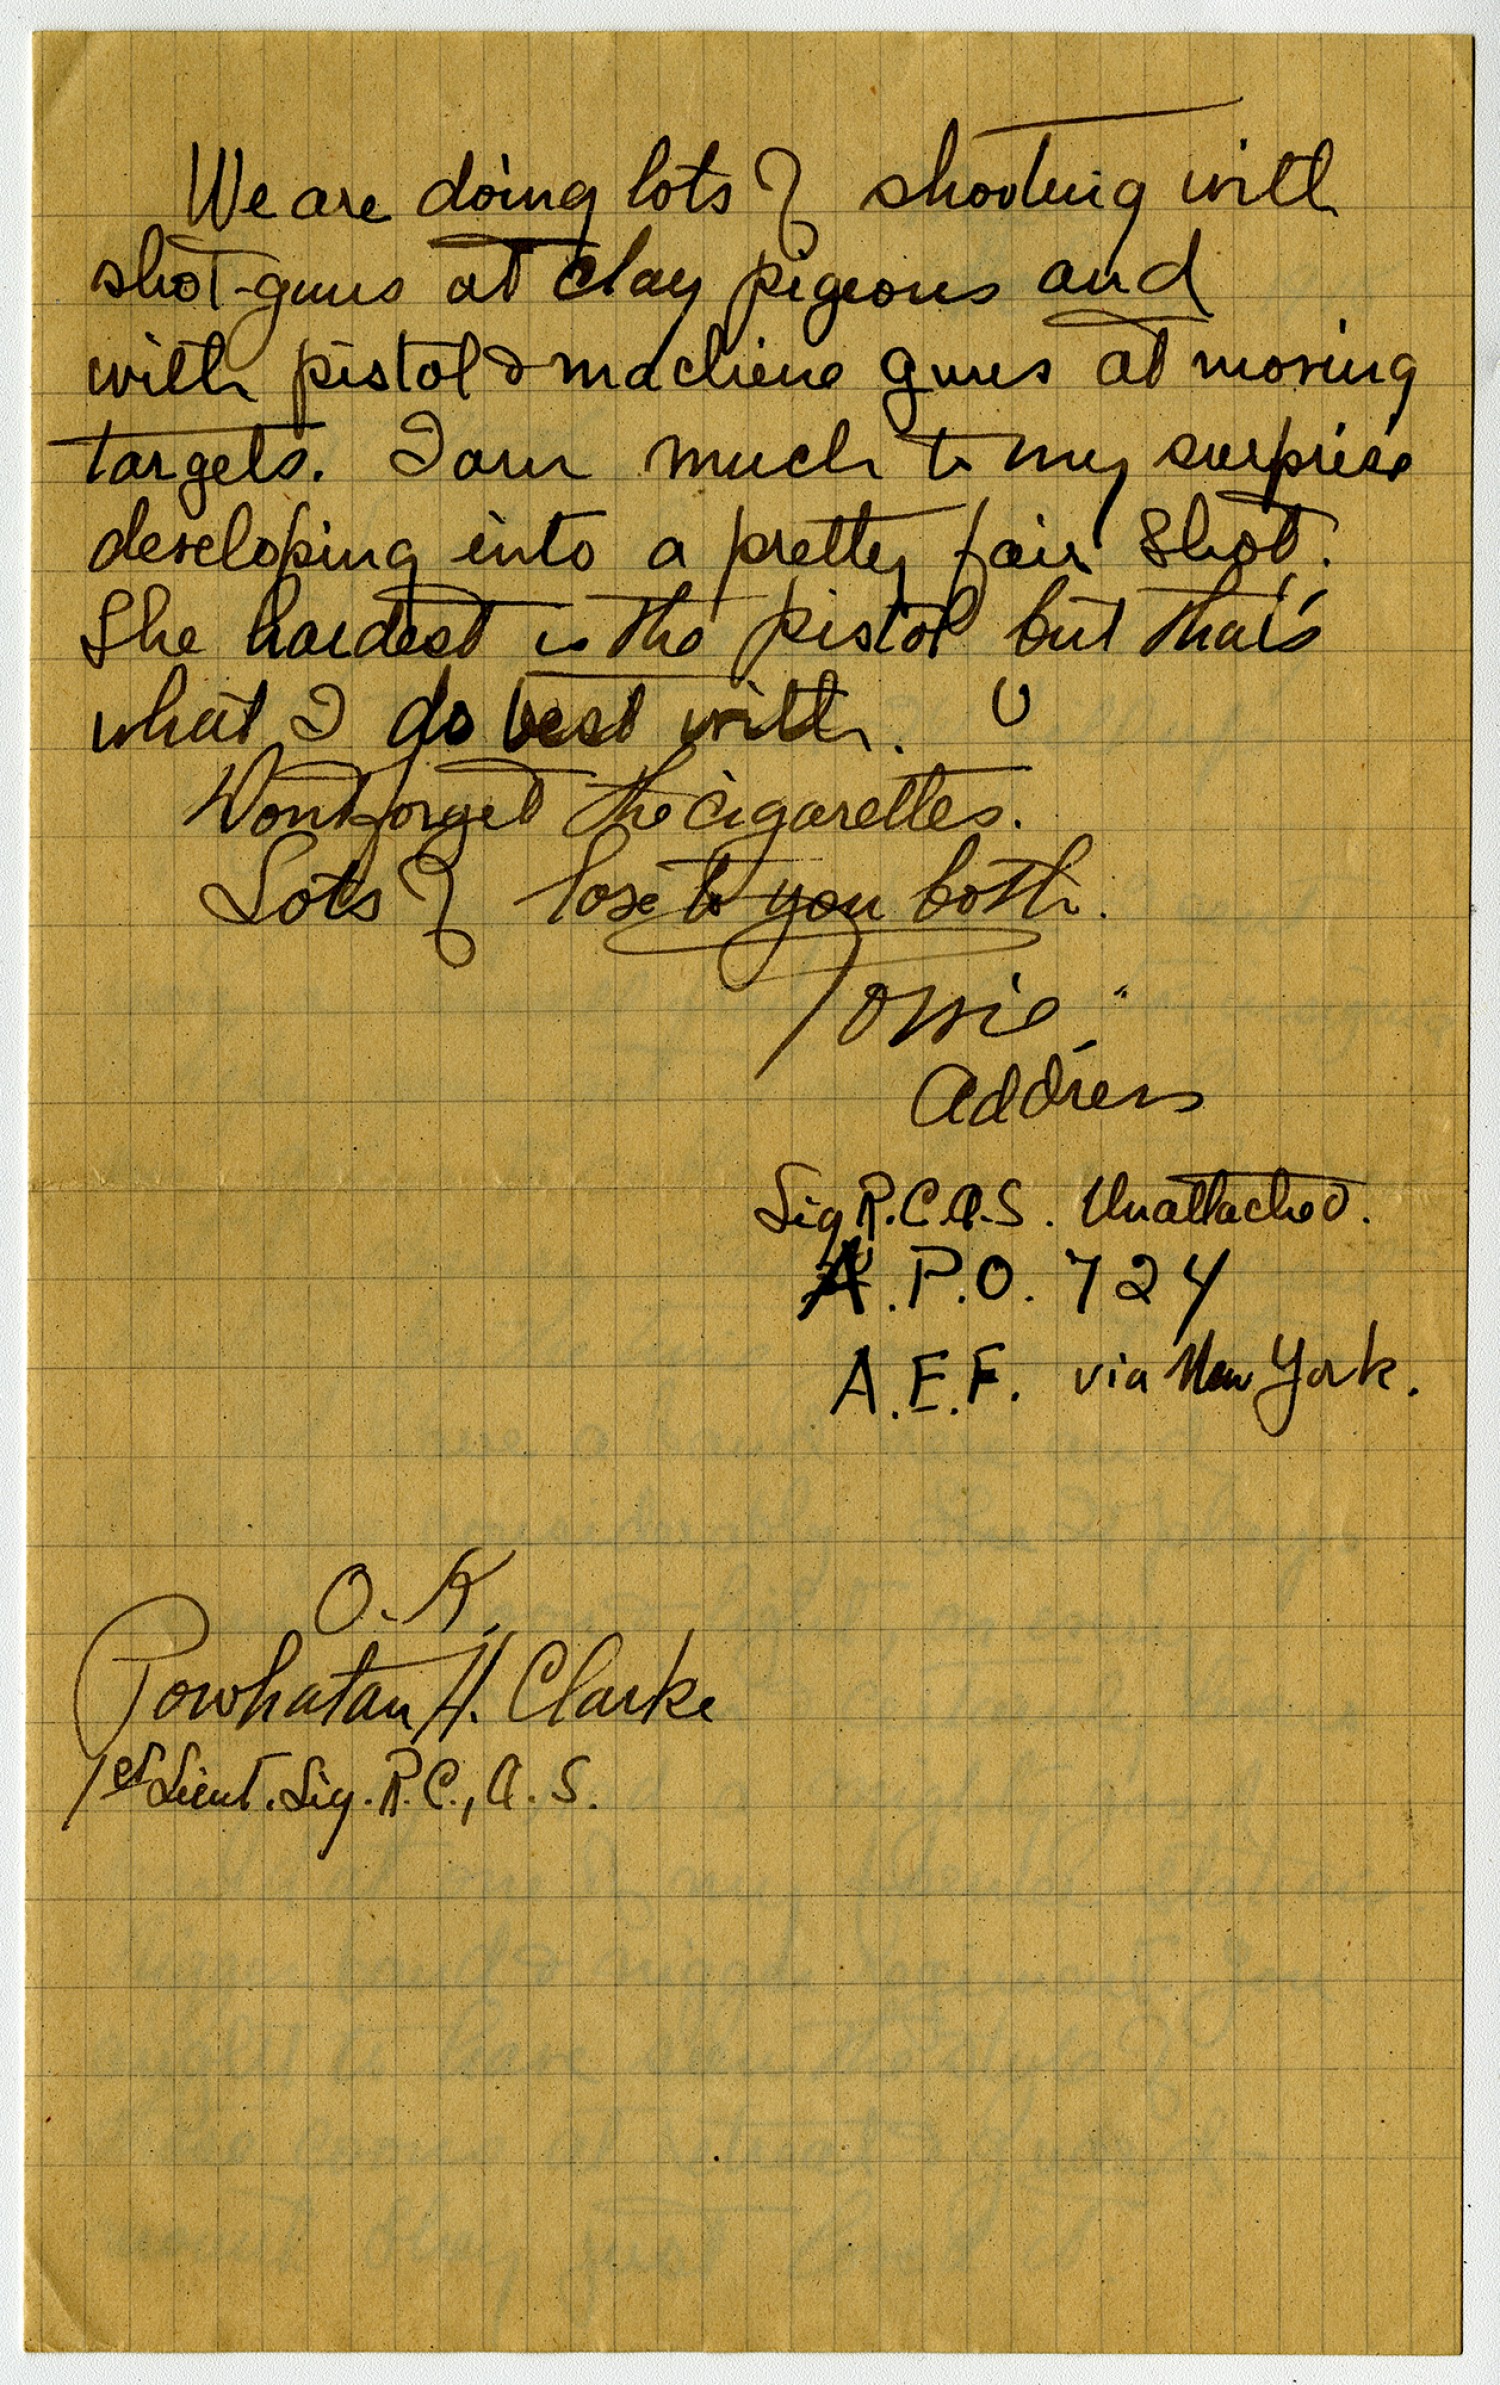 We are doing lots of shooting with
shot-guns at clay pigeons and
with pistol & machine guns at moving
targets. I am much to my surprise
developing into a pretty fair shot.
The hardest is the pistol but that's
what I do best with.
Wont forget the cigarettes.
Lots of love to you both.
Address
Sig R.C.A.S. Unattached.
A.P.O. 724
A.E.F. via New York.
O.K.
Powhatan H. Clarke
1st Lieut. Sig. R.C., A.S.